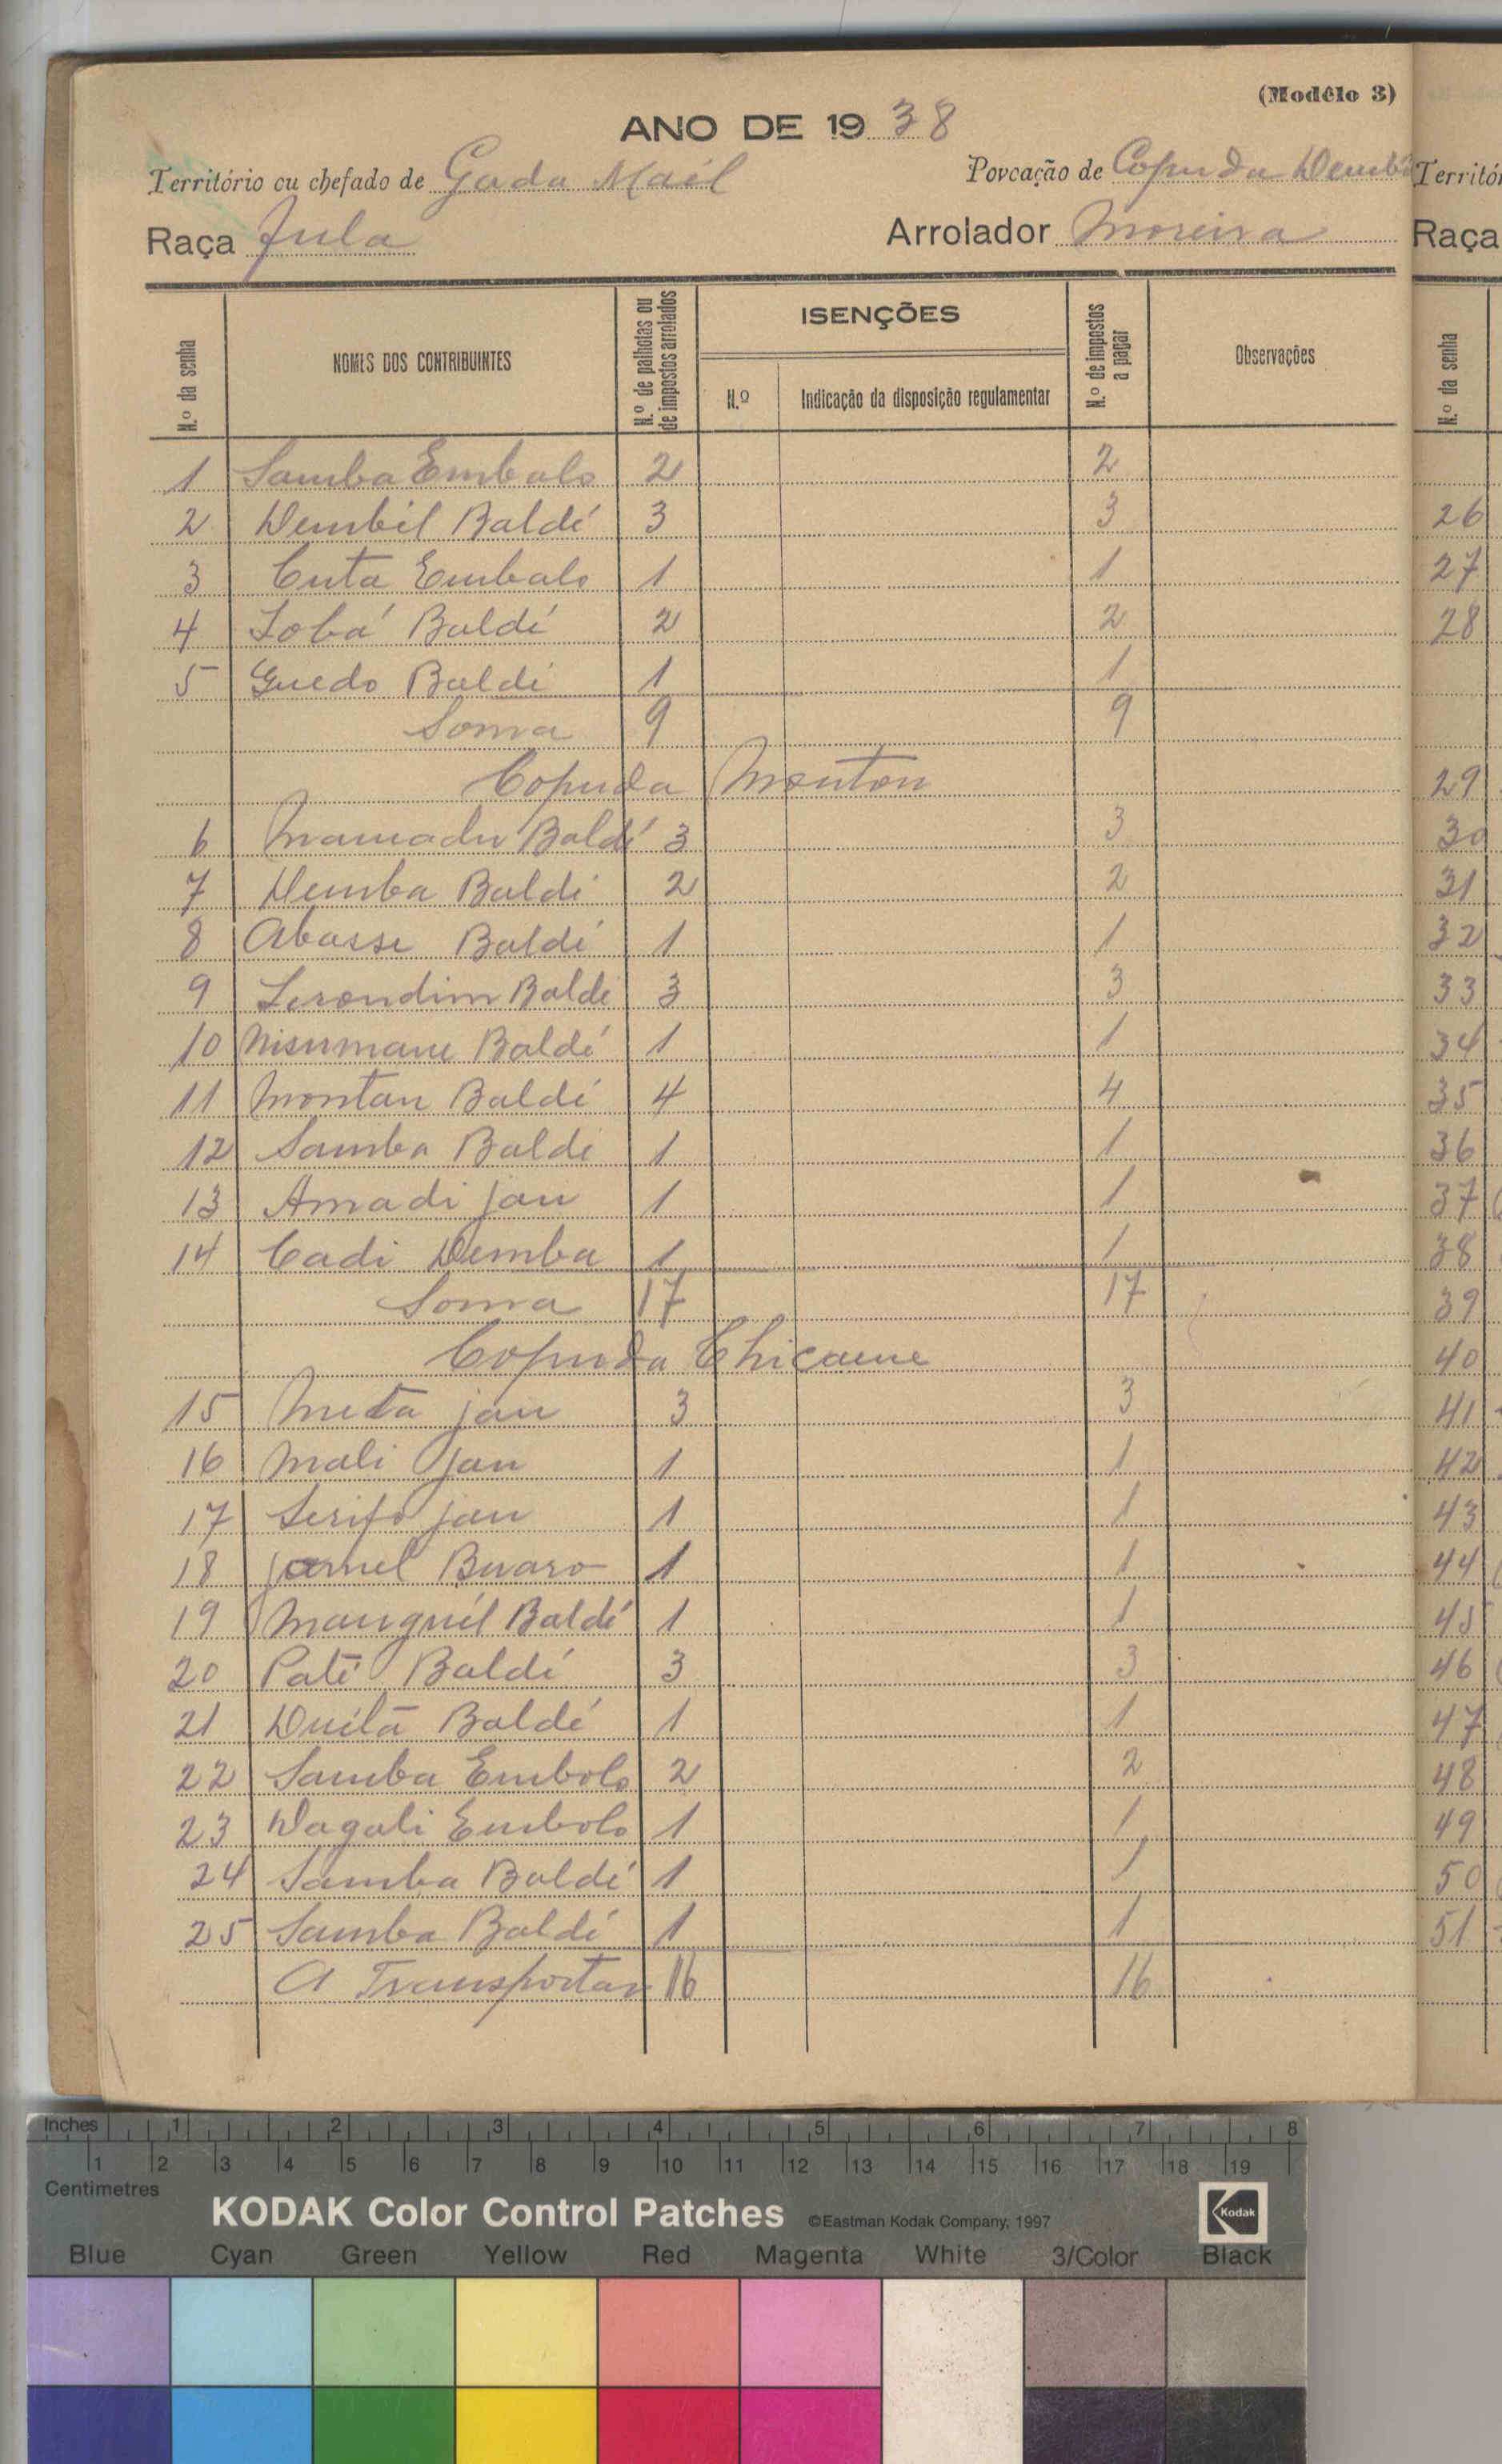 (Modêlo 3)
ANO DE 19 38
Território ou chefado de Gada Maél Povoação de Copuda Dembé
Raça Fula Arrolador Moreira
N.º da senha NOMES DOS CONTRIBUINTES N.º de palhotas ou de impostos arrolados ISENÇÕES N.º de impostos a pagar Observações
N.º Indicação da disposição regulamentar
1 Samba Embalo 2 2
2 Dembél Baldé 3 3
3 Cuta Embalo 1 1
4 Baldé 2 2
5 Guedo Baldé 1 1
Soma 9 9
Copuda Monton
6 Mamadu Baldé 3 3
7 Demba Baldé 2 2
8 Abasse Baldé 1 1
9 Baldé 3 3
10 Baldé 1 1
11 Montan Baldé 4 4
12 Samba Baldé 1 1
13 Amadi jau 1 1
14 Cadi Demba 1 1
Soma 17 17
Copuda Chicame
15 jau 3 3
16 Mali Jau 1 1
17 Serifo jau 1 1
18 Buaro 1 1
19 Manguél Baldé 1 1
20 Paté Baldé 3 3
21 Baldé 1 1
22 Samba Embalo 2 2
23 Dagali Embalo 1 1
24 Samba Baldé 1 1
25 Samba Baldé 1 1
A Transportar 16 16
Territó
Raça
N.º da senha
26
27
28
29
30
31
32
33
34
35
36
37
38
39
40
41
42
43
44
45
46
47
48
49
50
51
Inches 1 2 3 4 5 6 7 8
1 2 3 4 5 6 7 8 9 10 11 12 13 14 15 16 17 18 19
Centimetres
KODAK Color Control Patches ©Eastman Kodak Company, 1997 Kodak
Blue Cyan Green Yellow Red Magenta White 3/Color Black